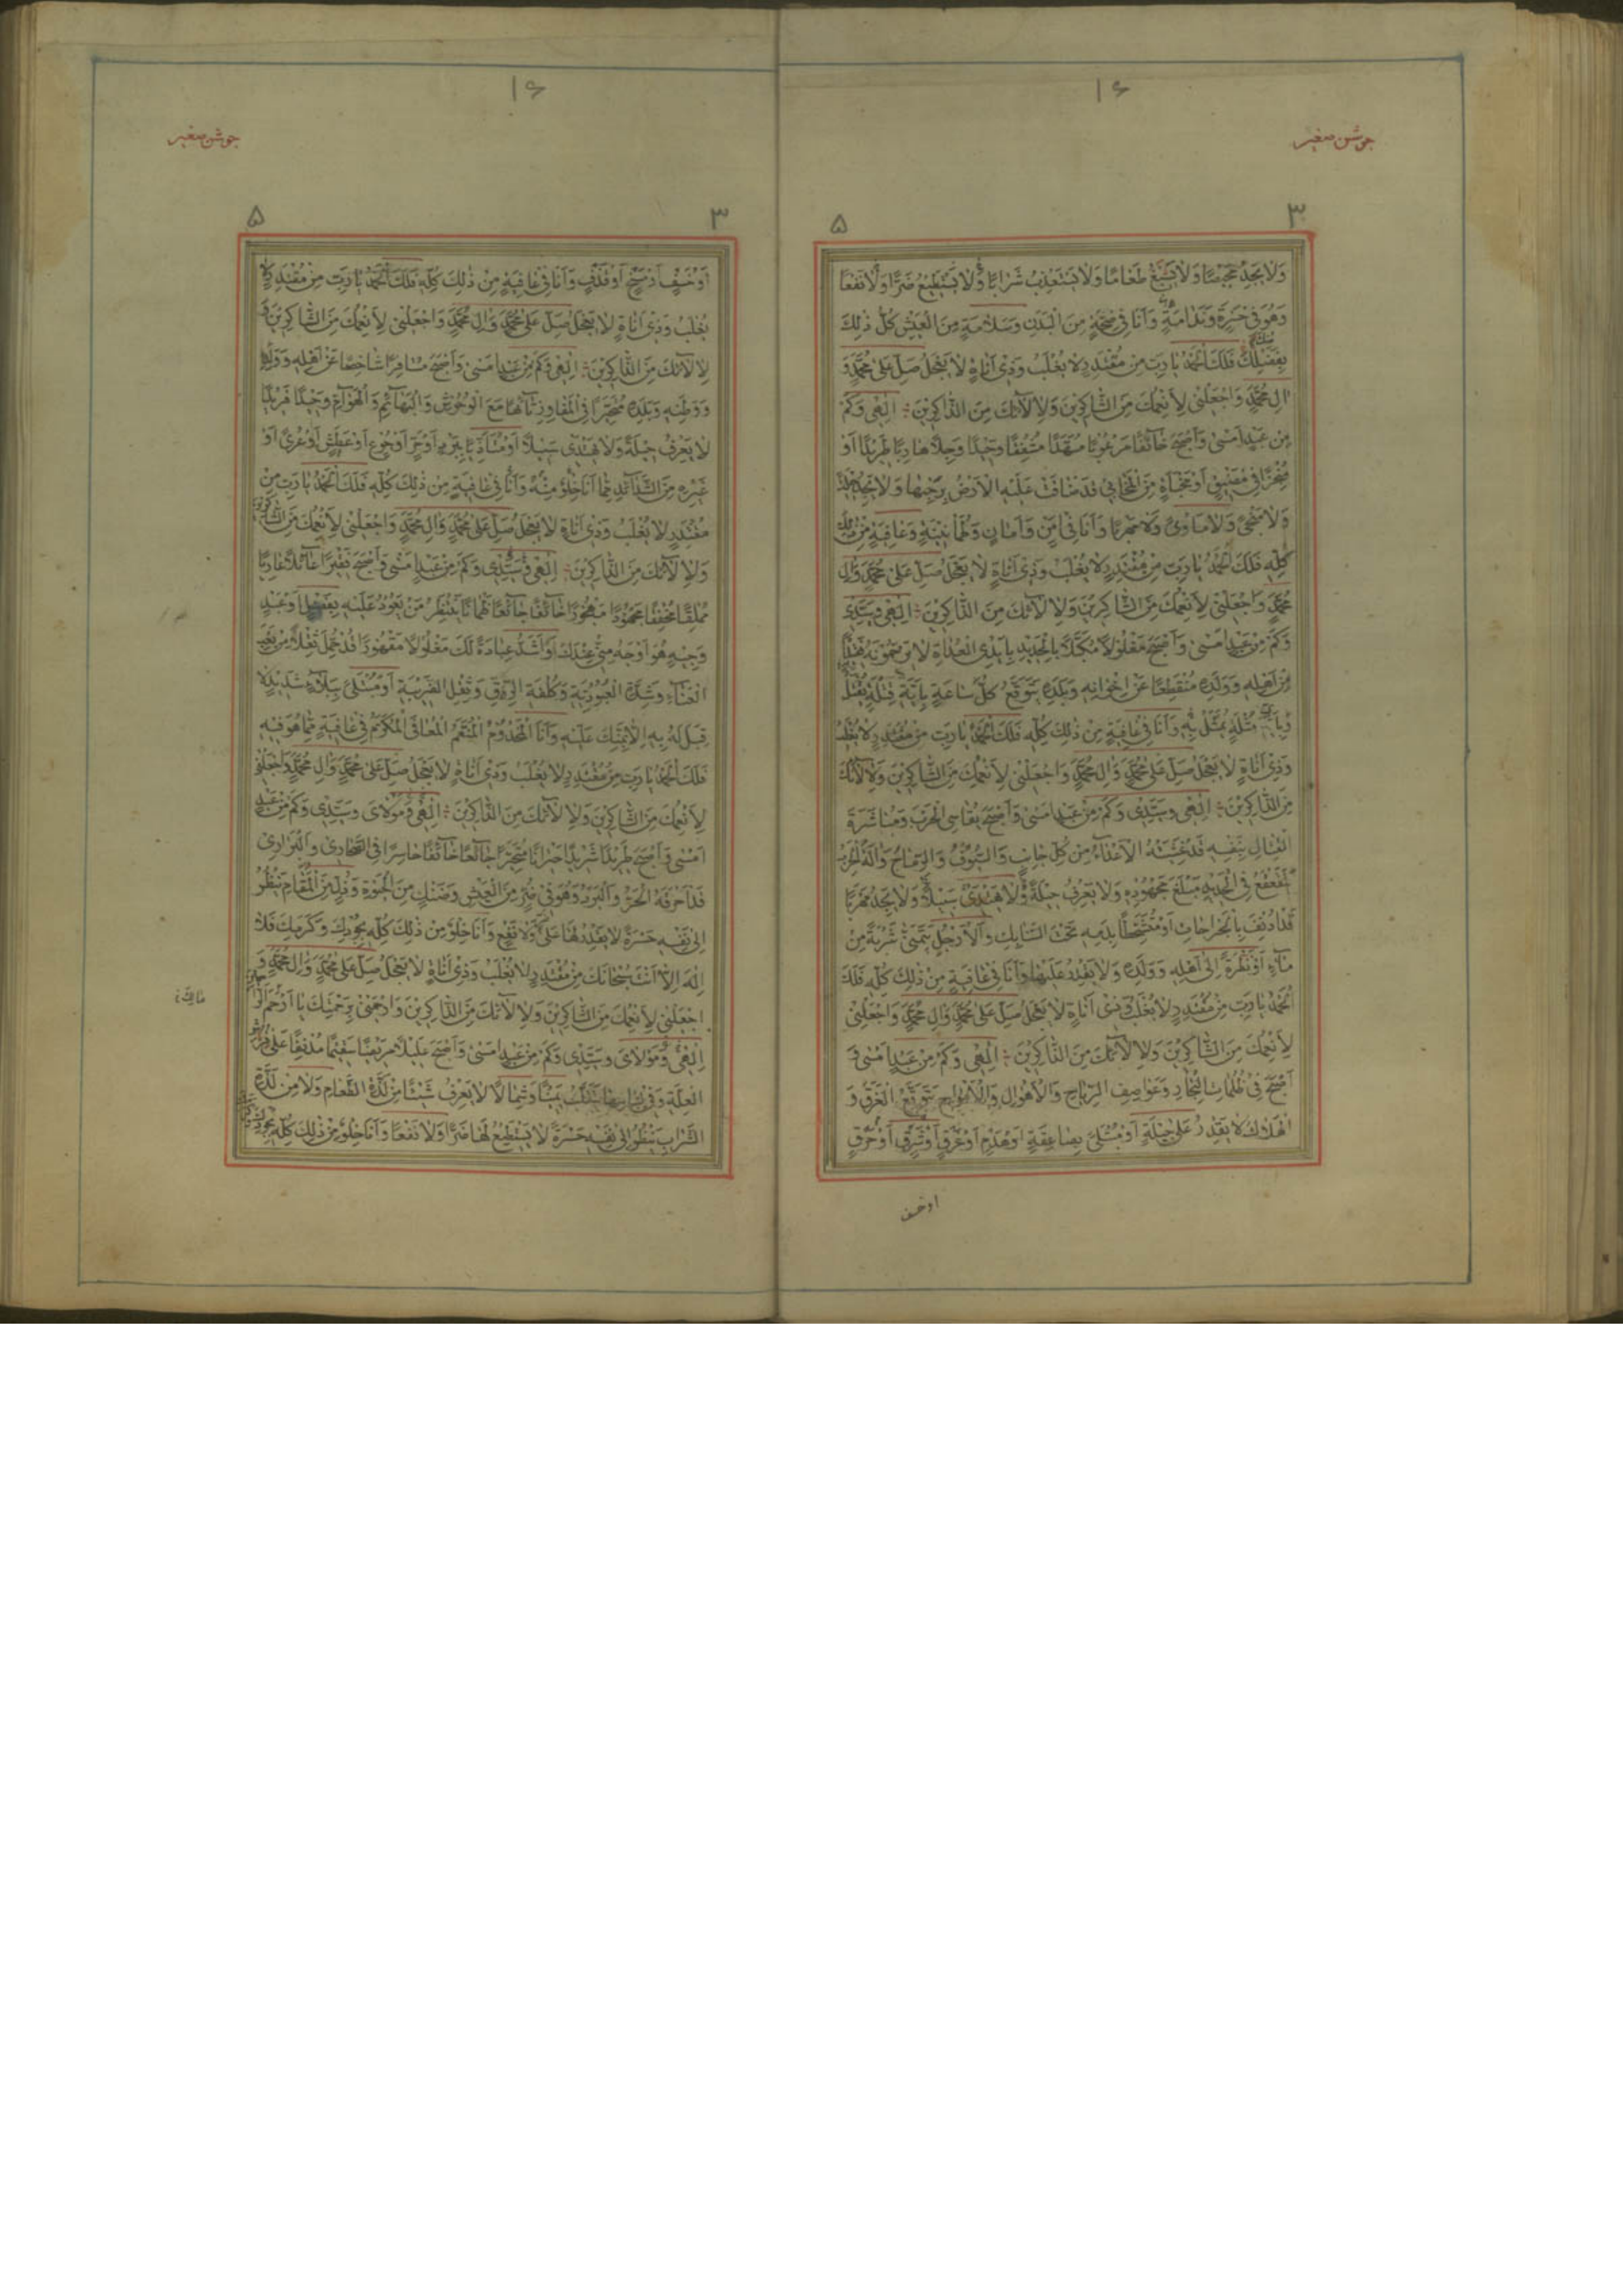 ١۶
جوشن صغیر
٣
۵
وَلَا یَجِدُ مَحِیصًا وَلَا یُسِیغُ طَعَامًا وَلَا یَسْتَعْذِبُ شَرَابًا وَلَا یَسْتَطِیعُ ضَرًّا وَلَا نَفْعًا
وَهُوَ فِی حَسْرَةٍ وَنَدَامَةٍ وَأَنَا فِی صِحَّةٍ مِنَ الْبَدَنِ وَسَلَامَةٍ مِنَ الْعَیْشِ كُلُّ ذٰلِكَ
مِنْكَ بِفَضْلِكَ فَلَكَ الْحَمْدُ یَا رَبِّ مِنْ مُقْتَدِرٍ لَا یُغْلَبُ وَذِی أَنَاةٍ لَا یَعْجَلُ صَلِّ عَلٰی مُحَمَّدٍ وَ
اٰلِ مُحَمَّدٍ وَاجْعَلْنِی لِأَنْعُمِكَ مِنَ الشَّاكِرِینَ وَلِاٰلَائِكَ مِنَ الذَّاكِرِینَ إِلٰهِی وَكَمْ
مِنْ عَبْدٍ أَمْسٰی وَأَصْبَحَ خَائِفًا مَرْعُوبًا مُسَهَّدًا مُشْفِقًا وَحِیدًا وَجِلًا هَارِبًا طَرِیدًا أَوْ
مُنْجَحِرًا فِی مَضِیقٍ أَوْ مَخْبَأَةٍ مِنَ الْمَخَابِی قَدْ ضَاقَتْ عَلَیْهِ الْأَرْضُ بِرُحْبِهَا وَلَا یَجِدُ حِیلَةً
وَلَا مَنْجًی وَلَا مَأْوًی وَلَا مَهْرَبًا وَأَنَا فِی أَمْنٍ وَأَمَانٍ وَطُمَأْنِینَةٍ وَعَافِیَةٍ مِنْ ذٰلِكَ
كُلِّهِ فَلَكَ الْحَمْدُ یَا رَبِّ مِنْ مُقْتَدِرٍ لَا یُغْلَبُ وَذِی أَنَاةٍ لَا یَعْجَلُ صَلِّ عَلٰی مُحَمَّدٍ وَاٰلِ
مُحَمَّدٍ وَاجْعَلْنِی لِأَنْعُمِكَ مِنَ الشَّاكِرِینَ وَلِاٰلَائِكَ مِنَ الذَّاكِرِینَ إِلٰهِی وَسَیِّدِی
وَكَمْ مِنْ عَبْدٍ أَمْسٰی وَأَصْبَحَ مَغْلُولًا مُكَبَّلًا بِالْحَدِیدِ بِأَیْدِی الْعُدَاةِ لَا یَرْحَمُونَهُ فَقِیدًا
مِنْ أَهْلِهِ وَوَلَدِهِ مُنْقَطِعًا عَنْ إِخْوَانِهِ وَبَلَدِهِ یَتَوَقَّعُ كُلَّ سَاعَةٍ بِأَیَّةِ قِتْلَةٍ یُقْتَلُ
وَبِأَیِّ مُثْلَةٍ یُمَثَّلُ بِهِ وَأَنَا فِی عَافِیَةٍ مِنْ ذٰلِكَ كُلِّهِ فَلَكَ الْحَمْدُ یَا رَبِّ مِنْ مُقْتَدِرٍ لَا یُغْلَبُ
وَذِی أَنَاةٍ لَا یَعْجَلُ صَلِّ عَلٰی مُحَمَّدٍ وَاٰلِ مُحَمَّدٍ وَاجْعَلْنِی لِأَنْعُمِكَ مِنَ الشَّاكِرِینَ وَلِاٰلَائِكَ
مِنَ الذَّاكِرِینَ إِلٰهِی وَسَیِّدِی وَكَمْ مِنْ عَبْدٍ أَمْسٰی وَأَصْبَحَ یُقَاسِی الْحَرْبَ وَمُبَاشَرَةَ
الْقِتَالِ بِنَفْسِهِ قَدْ غَشِیَتْهُ الْأَعْدَاءُ مِنْ كُلِّ جَانِبٍ وَالسُّیُوفُ وَالرِّمَاحُ وَاٰلَةُ الْحَرْبِ
یَتَقَعْقَعُ فِی الْحَدِیدِ مَبْلَغَ مَجْهُودِهِ وَلَا یَعْرِفُ حِیلَةً وَلَا یَهْتَدِی سَبِیلًا وَلَا یَجِدُ مَهْرَبًا
قَدْ أُدْنِفَ بِالْجِرَاحَاتِ أَوْ مُتَشَحِّطًا بِدَمِهِ تَحْتَ السَّنَابِكِ وَالْأَرْجُلِ یَتَمَنّٰی شَرْبَةً مِنْ
مَاءٍ أَوْ نَظْرَةً إِلٰی أَهْلِهِ وَوَلَدِهِ وَلَا یَقْدِرُ عَلَیْهَا وَأَنَا فِی عَافِیَةٍ مِنْ ذٰلِكَ كُلِّهِ فَلَكَ
الْحَمْدُ یَا رَبِّ مِنْ مُقْتَدِرٍ لَا یُغْلَبُ وَذِی أَنَاةٍ لَا یَعْجَلُ صَلِّ عَلٰی مُحَمَّدٍ وَاٰلِ مُحَمَّدٍ وَاجْعَلْنِی
لِأَنْعُمِكَ مِنَ الشَّاكِرِینَ وَلِاٰلَائِكَ مِنَ الذَّاكِرِینَ إِلٰهِی وَكَمْ مِنْ عَبْدٍ أَمْسٰی وَ
أَصْبَحَ فِی ظُلُمَاتِ الْبِحَارِ وَعَوَاصِفِ الرِّیَاحِ وَالْأَهْوَالِ وَالْأَمْوَاجِ یَتَوَقَّعُ الْغَرَقَ وَ
الْهَلَاكَ لَا یَقْدِرُ عَلٰی حِیلَةٍ أَوْ مُبْتَلًی بِصَاعِقَةٍ أَوْ هَدْمٍ أَوْ غَرَقٍ أَوْ شَرَقٍ أَوْ حَرَقٍ
او خسف
١۶
جوشن صغیر
٣
۵
أَوْ خَسْفٍ أَوْ مَسْخٍ أَوْ قَذْفٍ وَأَنَا فِی عَافِیَةٍ مِنْ ذٰلِكَ كُلِّهِ فَلَكَ الْحَمْدُ یَا رَبِّ مِنْ مُقْتَدِرٍ لَا
یُغْلَبُ وَذِی أَنَاةٍ لَا یَعْجَلُ صَلِّ عَلٰی مُحَمَّدٍ وَاٰلِ مُحَمَّدٍ وَاجْعَلْنِی لِأَنْعُمِكَ مِنَ الشَّاكِرِینَ وَ
لِاٰلَائِكَ مِنَ الذَّاكِرِینَ إِلٰهِی وَكَمْ مِنْ عَبْدٍ أَمْسٰی وَأَصْبَحَ مُسَافِرًا شَاخِصًا عَنْ أَهْلِهِ وَوَلَدِهِ
وَوَطَنِهِ وَبَلَدِهِ مُتَحَیِّرًا فِی الْمَفَاوِزِ تَائِهًا مَعَ الْوُحُوشِ وَالْبَهَائِمِ وَالْهَوَامِّ وَحِیدًا فَرِیدًا
لَا یَعْرِفُ حِیلَةً وَلَا یَهْتَدِی سَبِیلًا أَوْ مُتَأَذِّیًا بِبَرْدٍ أَوْ حَرٍّ أَوْ جُوعٍ أَوْ عَطَشٍ أَوْ عُرْیٍ أَوْ
غَیْرِهِ مِنَ الشَّدَائِدِ مِمَّا أَنَا خِلْوٌ مِنْهُ وَأَنَا فِی عَافِیَةٍ مِنْ ذٰلِكَ كُلِّهِ فَلَكَ الْحَمْدُ یَا رَبِّ مِنْ
مُقْتَدِرٍ لَا یُغْلَبُ وَذِی أَنَاةٍ لَا یَعْجَلُ صَلِّ عَلٰی مُحَمَّدٍ وَاٰلِ مُحَمَّدٍ وَاجْعَلْنِی لِأَنْعُمِكَ مِنَ الشَّاكِرِینَ
وَلِاٰلَائِكَ مِنَ الذَّاكِرِینَ إِلٰهِی وَسَیِّدِی وَكَمْ مِنْ عَبْدٍ أَمْسٰی وَأَصْبَحَ فَقِیرًا عَائِلًا عَارِیًا
مُمْلِقًا مُخْفِقًا مَجْهُودًا مَهْجُورًا خَائِفًا جَائِعًا ظَمْاٰنًا یَنْتَظِرُ مَنْ یَعُودُ عَلَیْهِ بِفَضْلٍ أَوْ عَبْدٍ
وَجِیهٍ هُوَ أَوْجَهُ مِنِّی عِنْدَكَ وَأَشَدُّ عِبَادَةً لَكَ مَغْلُولًا مَقْهُورًا قَدْ حُمِّلَ ثِقْلًا مِنْ تَعَبِ
الْعَنَاءِ وَشِدَّةِ الْعُبُودِیَّةِ وَكُلْفَةِ الرِّقِّ وَثِقْلِ الضَّرِیبَةِ أَوْ مُبْتَلًی بِبَلَاءٍ شَدِیدٍ لَا
قِبَلَ لَهُ بِهِ إِلَّا بِمَنِّكَ عَلَیْهِ وَأَنَا الْمَخْدُومُ الْمُنَعَّمُ الْمُعَافَی الْمُكَرَّمُ فِی عَافِیَةٍ مِمَّا هُوَ فِیهِ
فَلَكَ الْحَمْدُ یَا رَبِّ مِنْ مُقْتَدِرٍ لَا یُغْلَبُ وَذِی أَنَاةٍ لَا یَعْجَلُ صَلِّ عَلٰی مُحَمَّدٍ وَاٰلِ مُحَمَّدٍ وَاجْعَلْنِی
لِأَنْعُمِكَ مِنَ الشَّاكِرِینَ وَلِاٰلَائِكَ مِنَ الذَّاكِرِینَ إِلٰهِی وَمَوْلَایَ وَسَیِّدِی وَكَمْ مِنْ عَبْدٍ
أَمْسٰی وَأَصْبَحَ طَرِیدًا شَرِیدًا حَیْرَانًا مُتَحَیِّرًا جَائِعًا خَائِفًا خَاسِرًا فِی الصَّحَارِی وَالْبَرَارِی
قَدْ أَحْرَقَهُ الْحَرُّ وَالْبَرْدُ وَهُوَ فِی ضُرٍّ مِنَ الْعَیْشِ وَضَنْكٍ مِنَ الْحَیٰوةِ وَذُلٍّ مِنَ الْمَقَامِ یَنْظُرُ
إِلٰی نَفْسِهِ حَسْرَةً لَا یَقْدِرُ لَهَا عَلٰی ضَرٍّ وَلَا نَفْعٍ وَأَنَا خِلْوٌ مِنْ ذٰلِكَ كُلِّهِ بِجُودِكَ وَكَرَمِكَ فَلَا
إِلٰهَ إِلَّا أَنْتَ سُبْحَانَكَ مِنْ مُقْتَدِرٍ لَا یُغْلَبُ وَذِی أَنَاةٍ لَا یَعْجَلُ صَلِّ عَلٰی مُحَمَّدٍ وَاٰلِ مُحَمَّدٍ وَ
اجْعَلْنِی لِأَنْعُمِكَ مِنَ الشَّاكِرِینَ وَلِاٰلَائِكَ مِنَ الذَّاكِرِینَ وَارْحَمْنِی بِرَحْمَتِكَ یَا أَرْحَمَ الرَّاحِمِینَ
إِلٰهِی وَمَوْلَایَ وَسَیِّدِی وَكَمْ مِنْ عَبْدٍ أَمْسٰی وَأَصْبَحَ عَلِیلًا مَرِیضًا سَقِیمًا مُدْنِفًا عَلٰی فُرُشِ
الْعِلَّةِ وَفِی لِبَاسِهَا یَتَقَلَّبُ یَمِینًا وَشِمَالًا لَا یَعْرِفُ شَیْئًا مِنْ لَذَّةِ الطَّعَامِ وَلَا مِنْ لَذَّةِ
الشَّرَابِ یَنْظُرُ إِلٰی نَفْسِهِ حَسْرَةً لَا یَسْتَطِیعُ لَهَا ضَرًّا وَلَا نَفْعًا وَأَنَا خِلْوٌ مِنْ ذٰلِكَ كُلِّهِ بِجُودِكَ